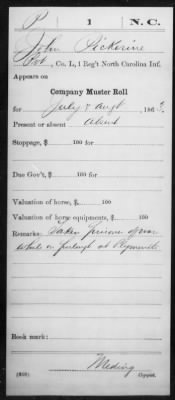 P | 1 | N. C.
John Pickerine
Pvt, Co. L, 1 Reg't North Carolina Inf.
Appears on
Company Muster Roll
for July & Augt, 1863.
Present or absent absent
Stoppage, $ 100 for
Due Gov't, $ 100 for
Valuation of horse, $ 100
Valuation of horse equipments, $ 100
Remarks: Taken prisoner of war
while on furlough at Plymouth
Book mark:
(858)
Copyist.